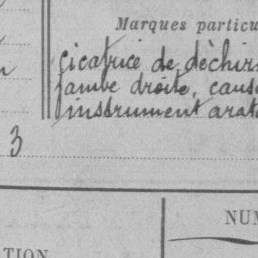 Marques particu
cicatrice de déchir
jambe droite, caus
instrument arat
3
NUM
ATION